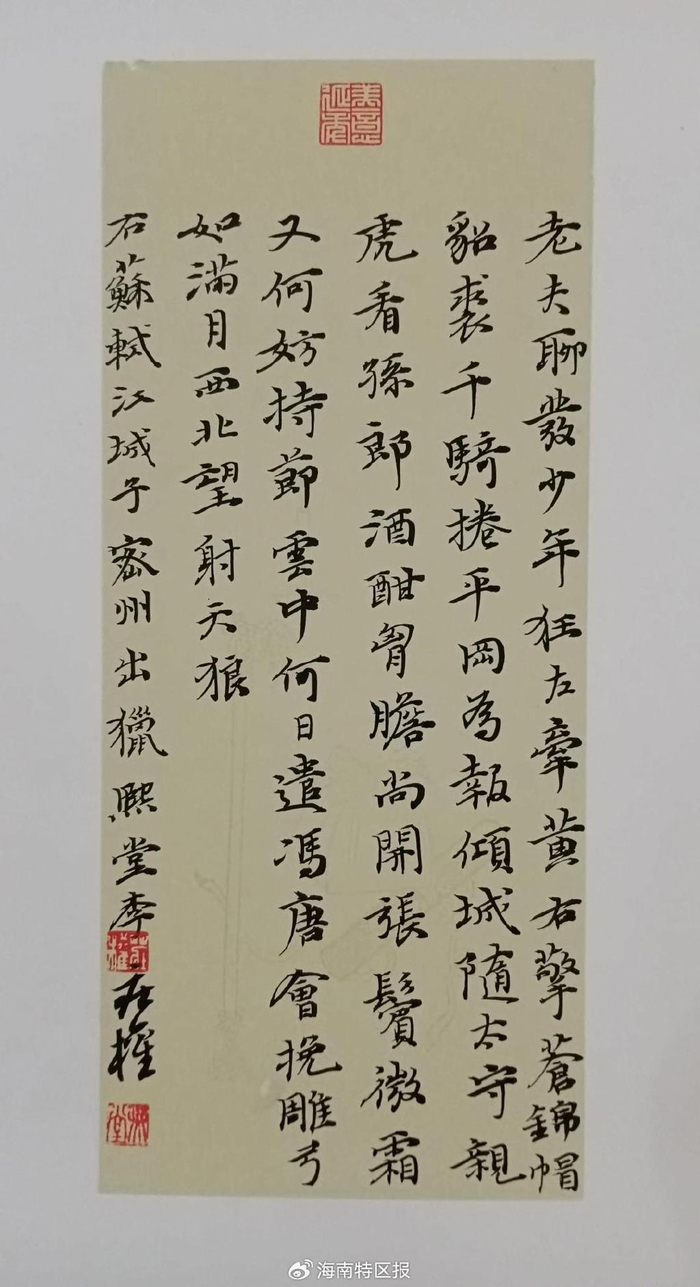 美意延年
老夫聊發少年狂左牽黃右擎蒼錦帽
貂裘千騎捲平岡為報傾城隨太守親
虎看孫郎酒酣胷膽尚開張鬢微霜
又何妨持節雲中何日遣馮唐會挽雕弓
如滿月西北望射天狼
右蘇軾江城子密州出獵熙堂李權
海南特区报